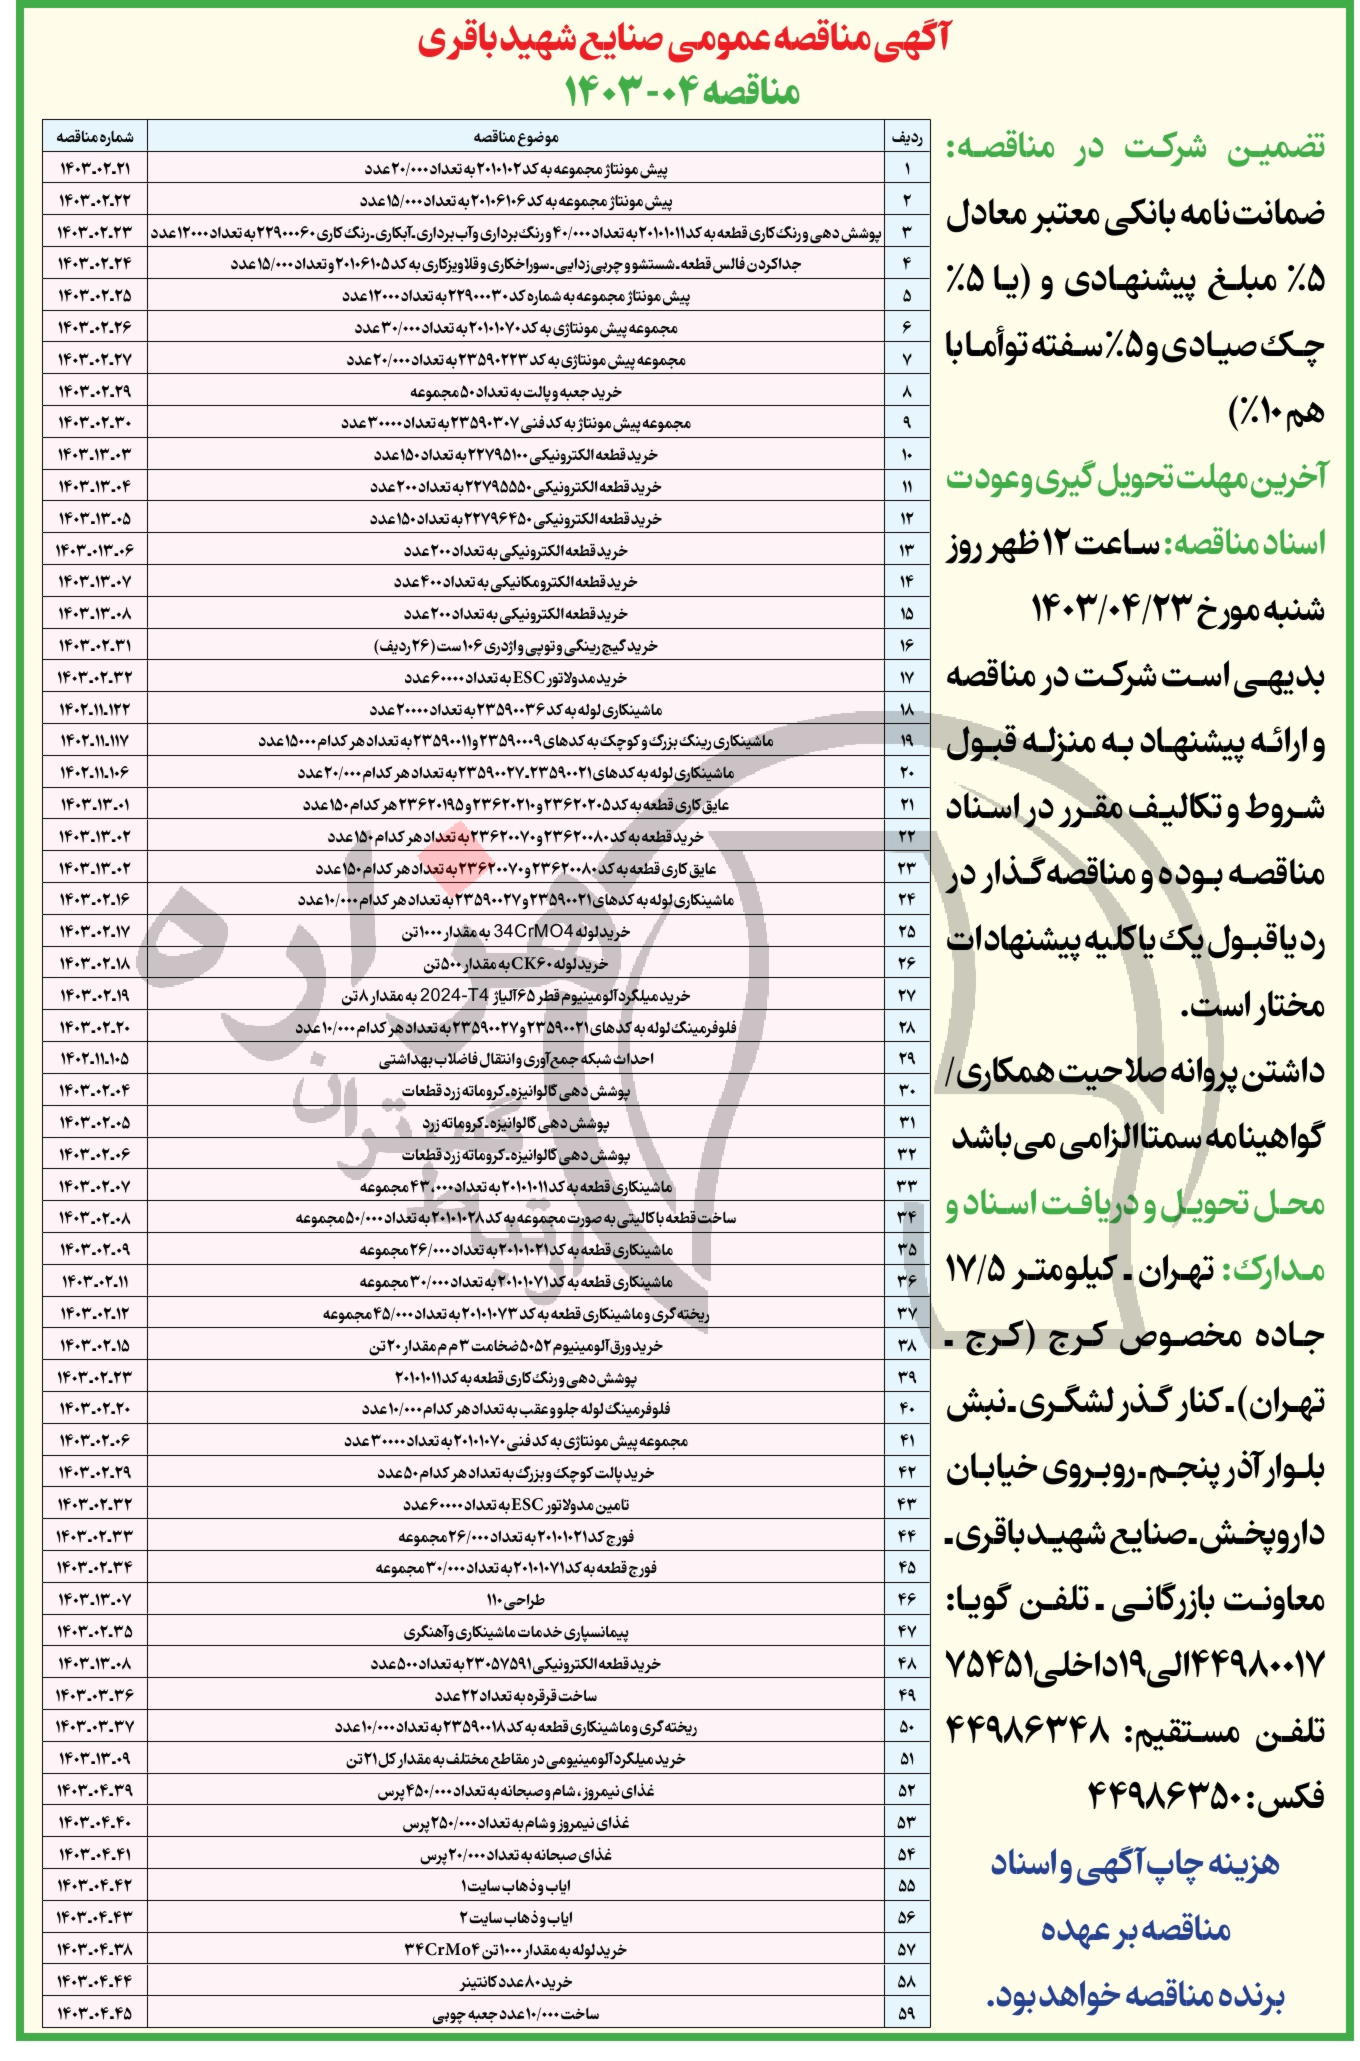 آگهی مناقصه عمومی صنایع شهید باقری
مناقصه ۰۴-۱۴۰۳
تضمین شرکت در مناقصه:
ضمانت نامه بانکی معتبر معادل
۵٪ مبلغ پیشنهادی و (یا ۵٪
چک صیادی و ۵٪ سفته توأما با
هم ۱۰٪)
آخرین مهلت تحویل گیری و عودت
اسناد مناقصه: ساعت ۱۲ ظهر روز
شنبه مورخ ۱۴۰۳/۰۴/۲۳
بدیهی است شرکت در مناقصه
و ارائه پیشنهاد به منزله قبول
شروط و تکالیف مقرر در اسناد
مناقصه بوده و مناقصه گذار در
رد یا قبول یک یا کلیه پیشنهادات
مختار است.
داشتن پروانه صلاحیت همکاری/
گواهینامه سمتا الزامی می باشد
محل تحویل و دریافت اسناد و
مدارک: تهران ـ کیلومتر ۱۷/۵
جاده مخصوص کرج (کرج ـ
تهران)ـ کنار گذر لشگری ـ نبش
بلوار آذر پنجم ـ روبروی خیابان
داروپخش ـ صنایع شهید باقری ـ
معاونت بازرگانی ـ تلفن گویا:
۴۴۹۸۰۰۱۷ الی ۱۹ داخلی ۷۵۴۵۱
تلفن مستقیم: ۴۴۹۸۶۳۴۸
فکس: ۴۴۹۸۶۳۵۰
هزینه چاپ آگهی و اسناد
مناقصه بر عهده
برنده مناقصه خواهد بود.
ردیف موضوع مناقصه شماره مناقصه
۱ پیش مونتاژ مجموعه به کد ۲۰۱۰۱۰۲ به تعداد ۲۰/۰۰۰ عدد ۱۴۰۳-۰۲-۲۱
۲ پیش مونتاژ مجموعه به کد ۲۰۱۰۶۱۰۶ به تعداد ۱۵/۰۰۰ عدد ۱۴۰۳-۰۲-۲۲
۳ پوشش دهی و رنگ کاری قطعه به کد ۲۰۱۰۱۰۱۱ به تعداد ۴۰/۰۰۰ و رنگ برداری و آب برداری-آبکاری-رنگ کاری ۲۲۹۰۰۰۶۰ به تعداد ۱۲۰۰۰ عدد ۱۴۰۳-۰۲-۲۳
۴ جداکردن فالس قطعه-شستشو و چربی زدایی-سوراخکاری و قلاویزکاری به کد ۲۰۱۰۶۱۰۵ و تعداد ۱۵/۰۰۰ عدد ۱۴۰۳-۰۲-۲۴
۵ پیش مونتاژ مجموعه به شماره کد ۲۲۹۰۰۰۳۰ به تعداد ۱۲۰۰۰ عدد ۱۴۰۳-۰۲-۲۵
۶ مجموعه پیش مونتاژی به کد ۲۰۱۰۱۰۷۰ به تعداد ۳۰/۰۰۰ عدد ۱۴۰۳-۰۲-۲۶
۷ مجموعه پیش مونتاژی به کد ۲۳۵۹۰۲۲۳ به تعداد ۲۰/۰۰۰ عدد ۱۴۰۳-۰۲-۲۷
۸ خرید جعبه و پالت به تعداد ۵۰ مجموعه ۱۴۰۳-۰۲-۲۹
۹ مجموعه پیش مونتاژ به کد فنی ۲۳۵۹۰۳۰۷ به تعداد ۳۰۰۰۰ عدد ۱۴۰۳-۰۲-۳۰
۱۰ خرید قطعه الکترونیکی ۲۲۷۹۵۱۰۰ به تعداد ۱۵۰ عدد ۱۴۰۳-۱۳-۰۳
۱۱ خرید قطعه الکترونیکی ۲۲۷۹۵۵۵۰ به تعداد ۲۰۰ عدد ۱۴۰۳-۱۳-۰۴
۱۲ خرید قطعه الکترونیکی ۲۲۷۹۶۴۵۰ به تعداد ۱۵۰ عدد ۱۴۰۳-۱۳-۰۵
۱۳ خرید قطعه الکترونیکی به تعداد ۲۰۰ عدد ۱۴۰۳-۰۱۳-۰۶
۱۴ خرید قطعه الکترومکانیکی به تعداد ۴۰۰ عدد ۱۴۰۳-۱۳-۰۷
۱۵ خرید قطعه الکترونیکی به تعداد ۲۰۰ عدد ۱۴۰۳-۱۳-۰۸
۱۶ خرید گیج رینگی و توپی و اژدری ۱۰۶ ست (۲۶ ردیف) ۱۴۰۳-۰۲-۳۱
۱۷ خرید مدولاتور ESC به تعداد ۶۰۰۰۰ عدد ۱۴۰۳-۰۲-۳۲
۱۸ ماشینکاری لوله به کد ۲۳۵۹۰۰۳۶ به تعداد ۲۰۰۰۰ عدد ۱۴۰۲-۱۱-۱۲۲
۱۹ ماشینکاری رینگ بزرگ و کوچک به کدهای ۲۳۵۹۰۰۰۹ و ۲۳۵۹۰۰۱۱ به تعداد هر کدام ۱۵۰۰۰ عدد ۱۴۰۲-۱۱-۱۱۷
۲۰ ماشینکاری لوله به کدهای ۲۳۵۹۰۰۲۱-۲۳۵۹۰۰۲۷ به تعداد هر کدام ۲۰/۰۰۰ عدد ۱۴۰۲-۱۱-۱۰۶
۲۱ عایق کاری قطعه به کد ۲۳۶۲۰۲۰۵ و ۲۳۶۲۰۲۱۰ و ۲۳۶۲۰۱۹۵ هر کدام ۱۵۰ عدد ۱۴۰۳-۱۳-۰۱
۲۲ خرید قطعه به کد ۲۳۶۲۰۰۸۰ و ۲۳۶۲۰۰۷۰ به تعداد هر کدام ۱۵۰ عدد ۱۴۰۳-۱۳-۰۲
۲۳ عایق کاری قطعه به کد ۲۳۶۲۰۰۸۰ و ۲۳۶۲۰۰۷۰ به تعداد هر کدام ۱۵۰ عدد ۱۴۰۳-۱۳-۰۲
۲۴ ماشینکاری لوله به کدهای ۲۳۵۹۰۰۲۱ و ۲۳۵۹۰۰۲۷ به تعداد هر کدام ۱۰/۰۰۰ عدد ۱۴۰۳-۰۲-۱۶
۲۵ خرید لوله 34CrMO4 به مقدار ۱۰۰۰ تن ۱۴۰۳-۰۲-۱۷
۲۶ خرید لوله CK۶۰ به مقدار ۵۰۰ تن ۱۴۰۳-۰۲-۱۸
۲۷ خرید میلگرد آلومینیوم قطر ۶۵ آلیاژ 2024-T4 به مقدار ۸ تن ۱۴۰۳-۰۲-۱۹
۲۸ فلوفرمینگ لوله به کدهای ۲۳۵۹۰۰۲۱ و ۲۳۵۹۰۰۲۷ به تعداد هر کدام ۱۰/۰۰۰ عدد ۱۴۰۳-۰۲-۲۰
۲۹ احداث شبکه جمع آوری و انتقال فاضلاب بهداشتی ۱۴۰۲-۱۱-۱۰۵
۳۰ پوشش دهی گالوانیزه-کروماته زرد قطعات ۱۴۰۳-۰۲-۰۴
۳۱ پوشش دهی گالوانیزه-کروماته زرد ۱۴۰۳-۰۲-۰۵
۳۲ پوشش دهی گالوانیزه-کروماته زرد قطعات ۱۴۰۳-۰۲-۰۶
۳۳ ماشینکاری قطعه به کد ۲۰۱۰۱۰۱۱ به تعداد ۴۳،۰۰۰ مجموعه ۱۴۰۳-۰۲-۰۷
۳۴ ساخت قطعه باکالیتی به صورت مجموعه به کد ۲۰۱۰۱۰۲۸ به تعداد ۵۰/۰۰۰ مجموعه ۱۴۰۳-۰۲-۰۸
۳۵ ماشینکاری قطعه به کد ۲۰۱۰۱۰۲۱ به تعداد ۲۶/۰۰۰ مجموعه ۱۴۰۳-۰۲-۰۹
۳۶ ماشینکاری قطعه به کد ۲۰۱۰۱۰۷۱ به تعداد ۳۰/۰۰۰ مجموعه ۱۴۰۳-۰۲-۱۱
۳۷ ریخته گری و ماشینکاری قطعه به کد ۲۰۱۰۱۰۷۳ به تعداد ۴۵/۰۰۰ مجموعه ۱۴۰۳-۰۲-۱۲
۳۸ خرید ورق آلومینیوم ۵۰۵۲ ضخامت ۳ م م مقدار ۲۰ تن ۱۴۰۳-۰۲-۱۵
۳۹ پوشش دهی و رنگ کاری قطعه به کد ۲۰۱۰۱۰۱۱ ۱۴۰۳-۰۲-۲۳
۴۰ فلوفرمینگ لوله جلو و عقب به تعداد هر کدام ۱۰/۰۰۰ عدد ۱۴۰۳-۰۲-۲۰
۴۱ مجموعه پیش مونتاژی به کد فنی ۲۰۱۰۱۰۷۰ به تعداد ۳۰۰۰۰ عدد ۱۴۰۳-۰۲-۰۶
۴۲ خرید پالت کوچک و بزرگ به تعداد هر کدام ۵۰ عدد ۱۴۰۳-۰۲-۲۹
۴۳ تامین مدولاتور ESC به تعداد ۶۰۰۰۰ عدد ۱۴۰۳-۰۲-۳۲
۴۴ فورج کد ۲۰۱۰۱۰۲۱ به تعداد ۲۶/۰۰۰ مجموعه ۱۴۰۳-۰۲-۳۳
۴۵ فورج قطعه به کد ۲۰۱۰۱۰۷۱ به تعداد ۳۰/۰۰۰ مجموعه ۱۴۰۳-۰۲-۳۴
۴۶ طراحی ۱۱۰ ۱۴۰۳-۱۳-۰۷
۴۷ پیمانسپاری خدمات ماشینکاری و آهنگری ۱۴۰۳-۰۲-۳۵
۴۸ خرید قطعه الکترونیکی ۲۳۰۵۷۵۹۱ به تعداد ۵۰۰ عدد ۱۴۰۳-۱۳-۰۸
۴۹ ساخت قرقره به تعداد ۲۲ عدد ۱۴۰۳-۰۳-۳۶
۵۰ ریخته گری و ماشینکاری قطعه به کد ۲۳۵۹۰۰۱۸ به تعداد ۱۰/۰۰۰ عدد ۱۴۰۳-۰۳-۳۷
۵۱ خرید میلگرد آلومینیومی در مقاطع مختلف به مقدار کل ۲۱ تن ۱۴۰۳-۱۳-۰۹
۵۲ غذای نیمروز ، شام و صبحانه به تعداد ۴۵۰/۰۰۰ پرس ۱۴۰۳-۰۴-۳۹
۵۳ غذای نیمروز و شام به تعداد ۲۵۰/۰۰۰ پرس ۱۴۰۳-۰۴-۴۰
۵۴ غذای صبحانه به تعداد ۲۰/۰۰۰ پرس ۱۴۰۳-۰۴-۴۱
۵۵ ایاب و ذهاب سایت ۱ ۱۴۰۳-۰۴-۴۲
۵۶ ایاب و ذهاب سایت ۲ ۱۴۰۳-۰۴-۴۳
۵۷ خرید لوله به مقدار ۱۰۰۰ تن ۳۴CrMo۴ ۱۴۰۳-۰۴-۳۸
۵۸ خرید ۸۰ عدد کانتینر ۱۴۰۳-۰۴-۴۴
۵۹ ساخت ۱۰/۰۰۰ عدد جعبه چوبی ۱۴۰۳-۰۴-۴۵
هزاره
ارتباط
گستران